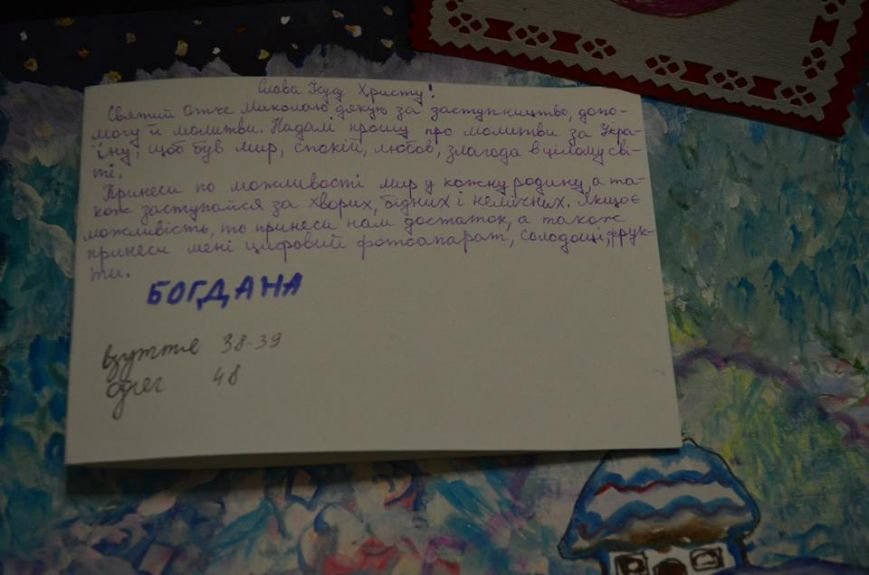 Слава Ісусу Христу!
Святий Отче Миколаю дякую за заступництво, допо-
могу й молитви. Надалі прошу про молитви за Укра-
їну, щоб був мир, спокій, любов, злагода в цілому сві-
ті.
Принеси по можливості мир у кожну родину, а та-
кож заступайся за хворих, бідних і немічних. Якщо є
можливість, то принеси нам достаток, а також
принеси мені цифровий фотоапарат, солодощі, фрук-
ти.
БОГДАНА
взуття 38-39
одяг 48